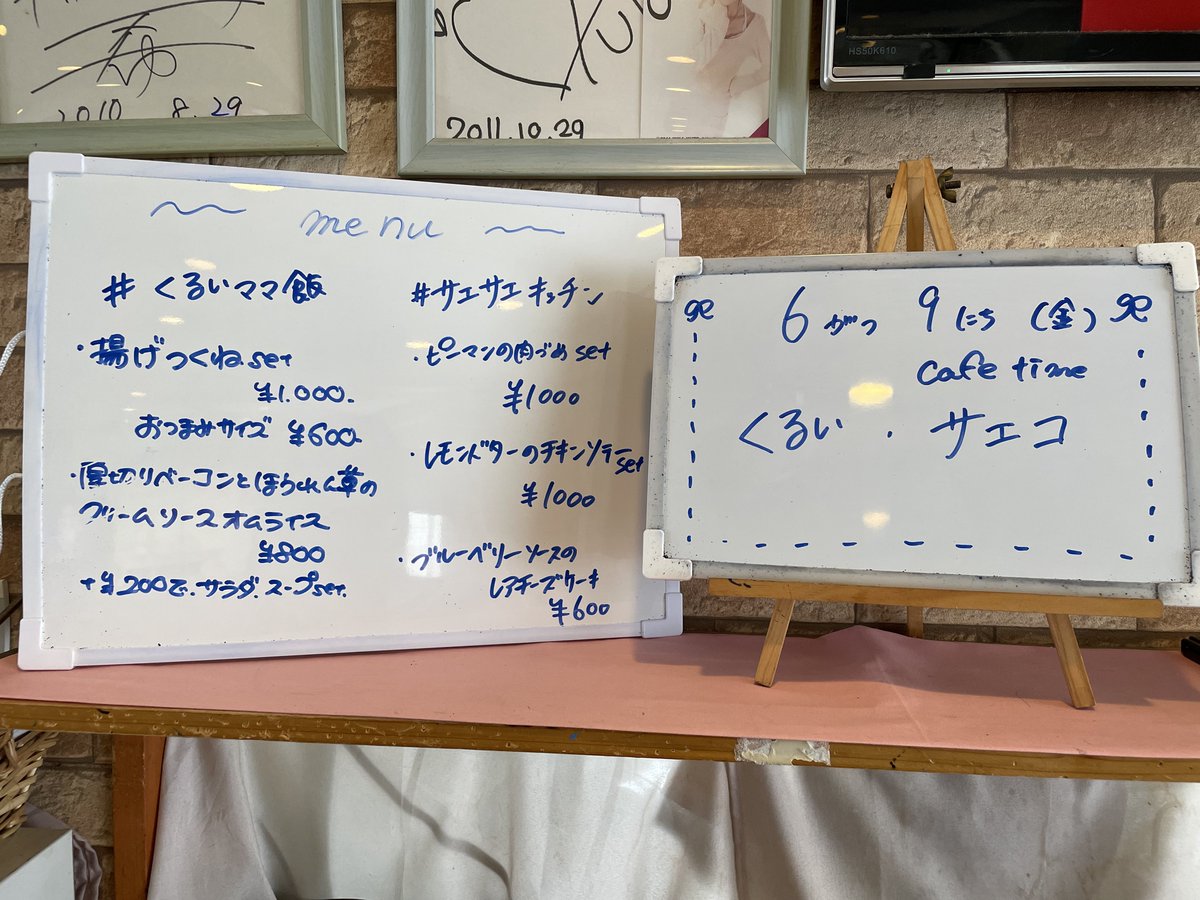 2010 8.29
2011.10.29
HS50K610
menu
#くるいママ飯
・揚げつくね.set
¥1.000-
おつまみサイズ ¥600-
・厚切りベーコンとほうれん草の
クリームソースオムライス
¥800
+¥200で.サラダ.スープset.
#サエサエキッチン
・ピーマンの肉づめset
¥1000
・レモンバターのチキンソテーset
¥1000
・ブルーベリーソースの
レアチーズケーキ
¥600
6がつ 9にち (金)
cafe time
くるい . サエコ